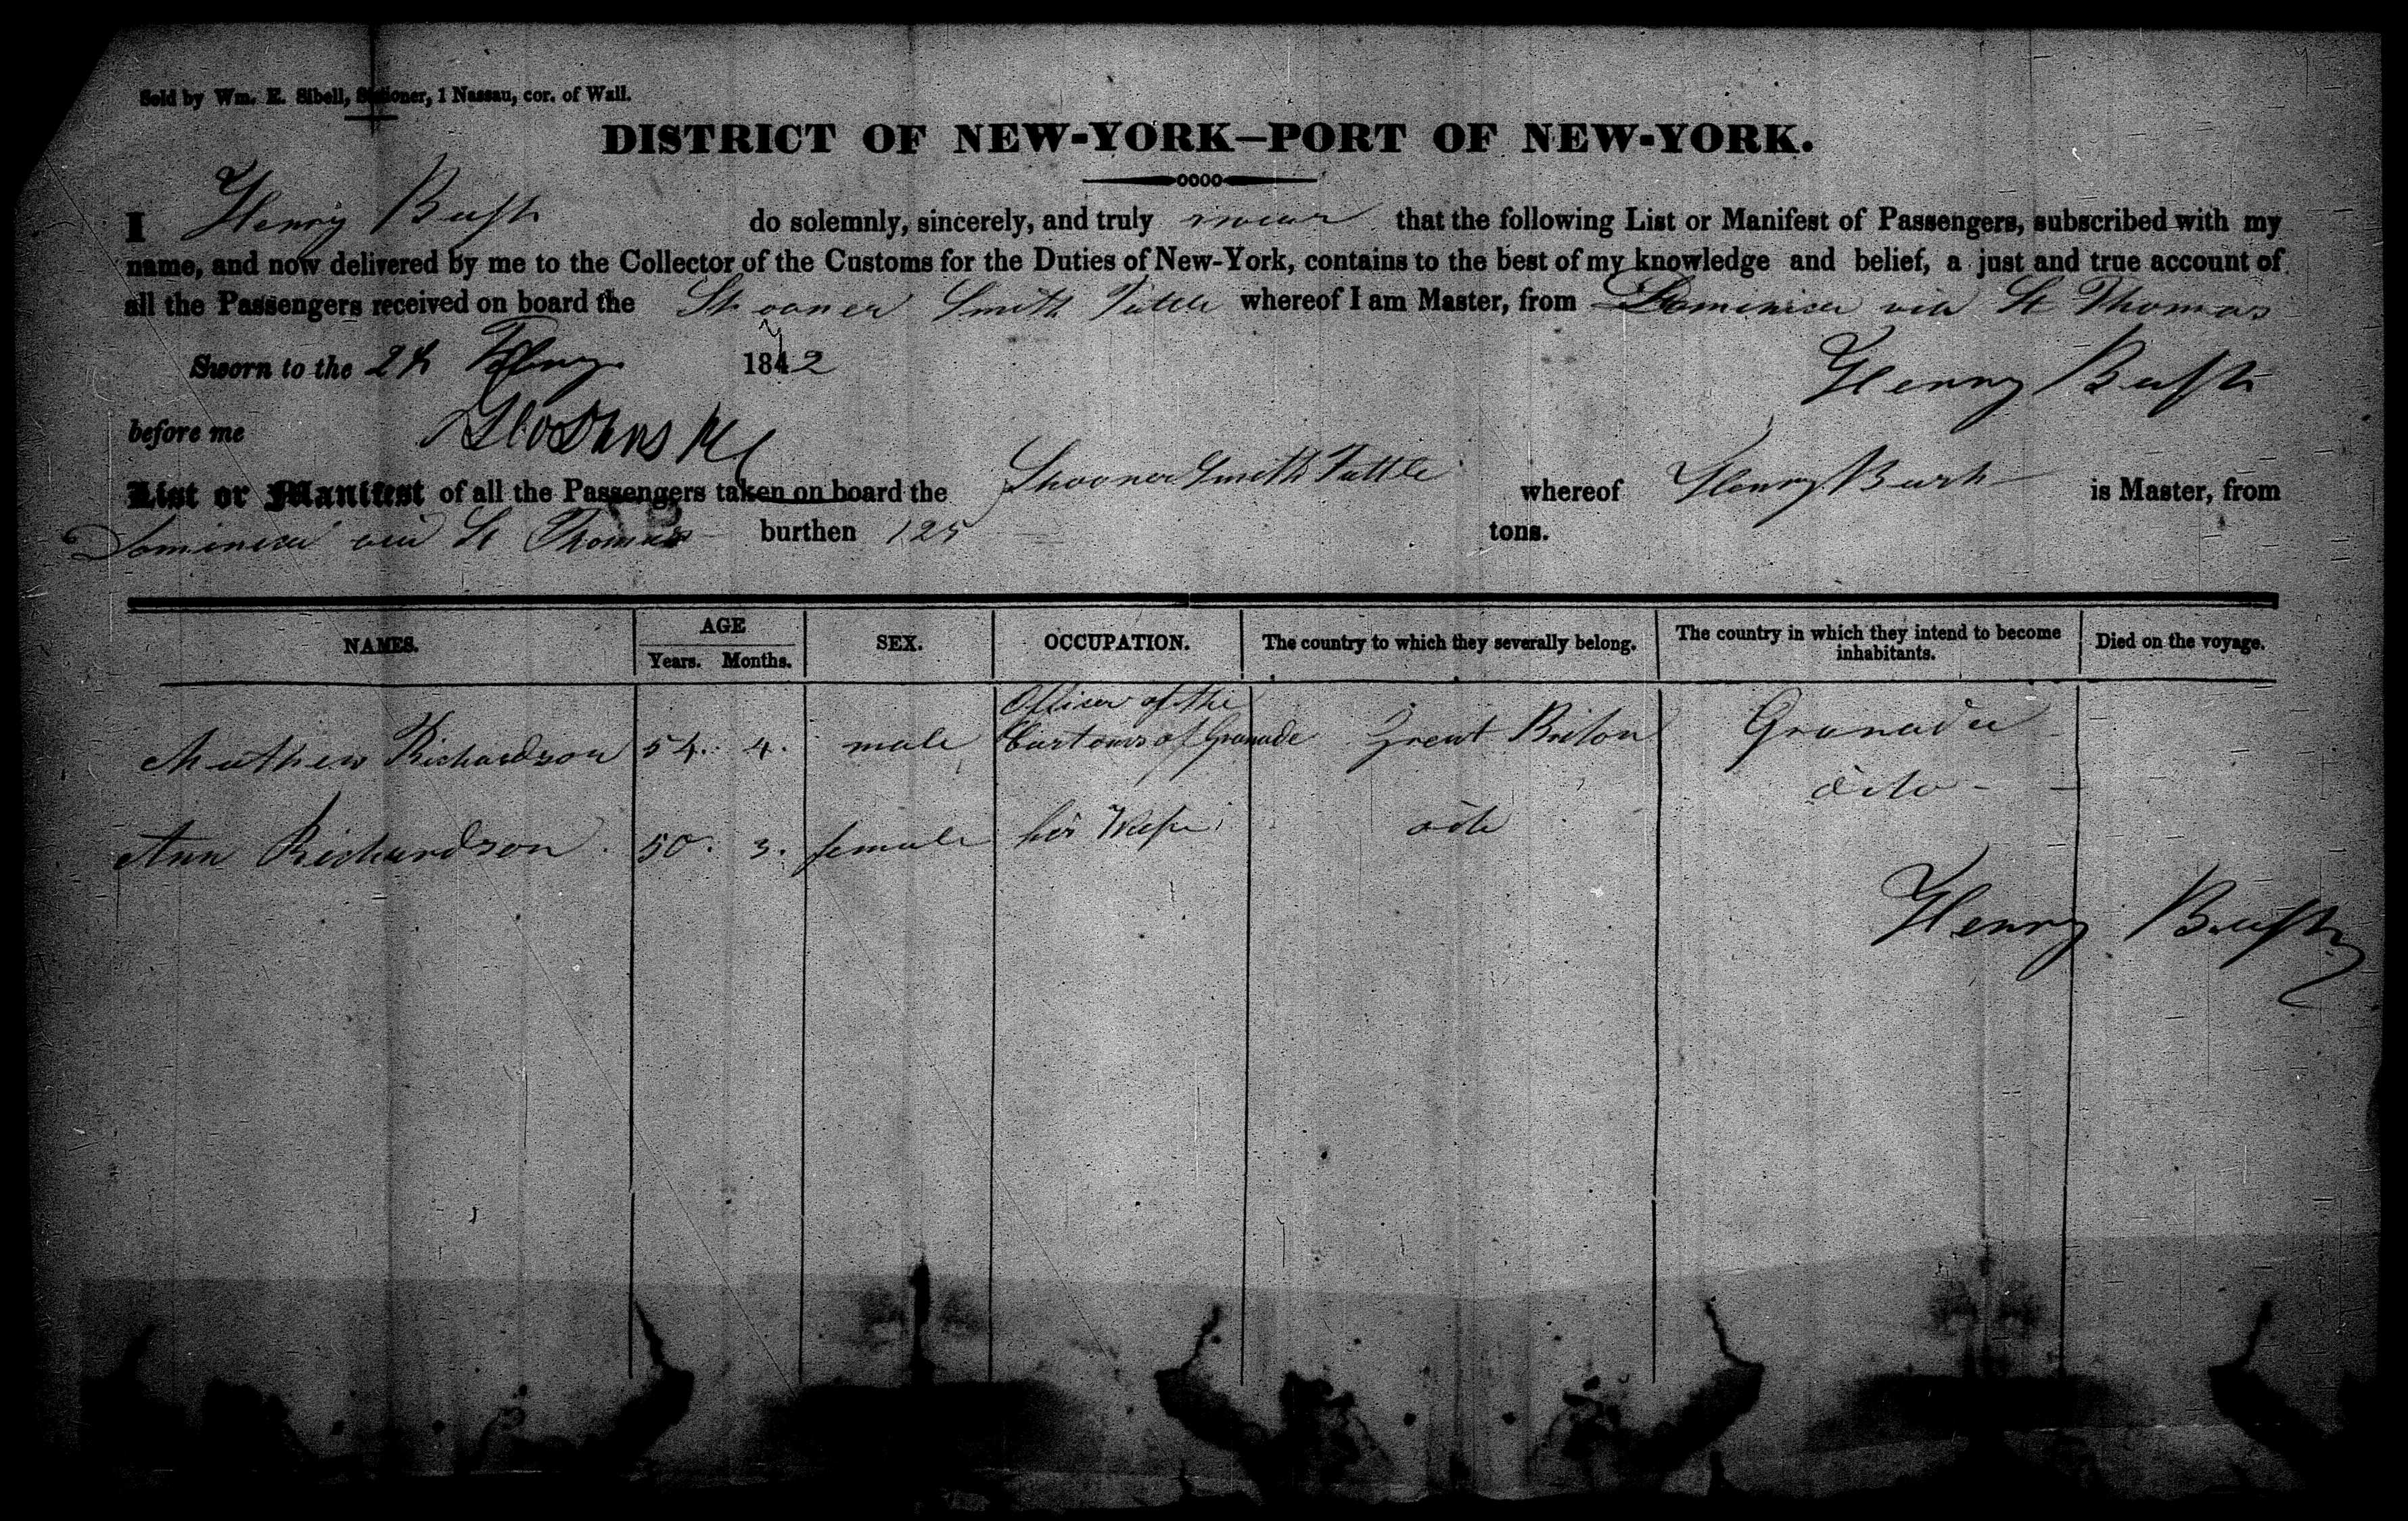 Sold by Wm. E. Sibell, Stationer, 1 Nassau, cor. of Wall.
DISTRICT OF NEW-YORK—PORT OF NEW-YORK.
I Henry Bush do solemnly, sincerely, and truly swear that the following List or Manifest of Passengers, subscribed with my
name, and now delivered by me to the Collector of the Customs for the Duties of New-York, contains to the best of my knowledge and belief, a just and true account of
all the Passengers received on board the Shooner Smith Tuttle whereof I am Master, from Dominica via St Thomas
Sworn to the 24 Feby 1842 Henry Bush
before me
List or Manifest of all the Passengers taken on board the Shooner Smith Tuttle whereof Henry Bush is Master, from
Dominica via St Thomas burthen 125 tons.
NAMES. AGE Years. Months. SEX. OCCUPATION. The country to which they severally belong. The country in which they intend to become inhabitants. Died on the voyage.
Mathew Richardson 54. 4. male Officer of the Customs of Granade Great Briton Granada
Ann Richardson. 50. 3. female his Wife dito dito
Henry Bush